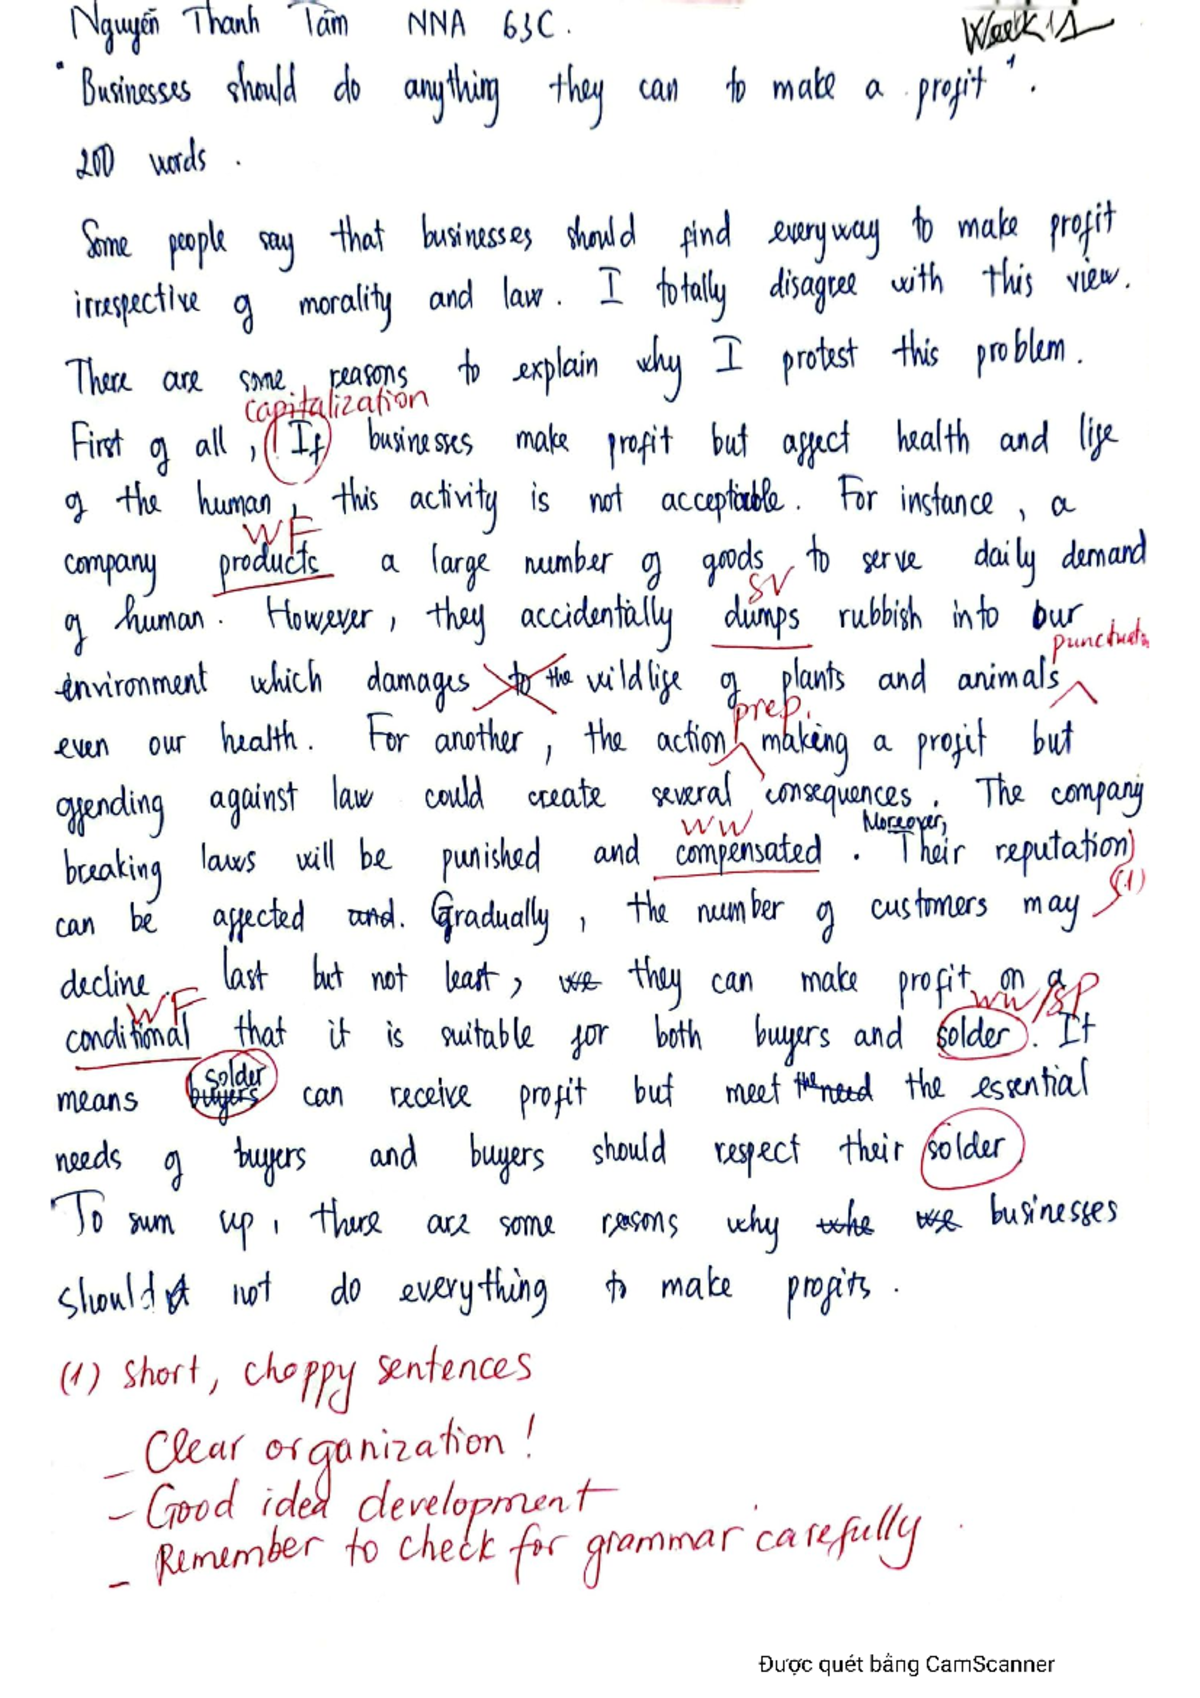 Nguyễn Thanh Tâm NNA 63C. Week 11
"Businesses should do anything they can to make a profit".
200 words.
Some people say that businesses should find everyway to make profit
irrespective of morality and law. I totally disagree with this view.
There are some reasons to explain why I protest this problem.
capitalization
First of all, If businesses make profit but affect health and life
of the human, this activity is not acceptable. For instance, a
WF
company products a large number of goods to serve daily demand
SV
of human. However, they accidentally dumps rubbish into our
punctuatn
environment which damages to the wildlife of plants and animals
prep.
even our health. For another, the action making a profit but
offending against law could create several consequences. The company
WW Moreover,
breaking laws will be punished and compensated. Their reputation
(1)
can be affected and. Gradually, the number of customers may
decline. last but not least, we they can make profit on a
WF WW/SP
conditional that it is suitable for both buyers and solder. It
solder
means buyers can receive profit but meet the need the essential
needs of buyers and buyers should respect their solder
To sum up, there are some reasons why whe we businesses
should not do everything to make profits.
(1) Short, choppy sentences
_ Clear organization!
- Good idea development
_ Remember to check for grammar carefully.
Được quét bằng CamScanner